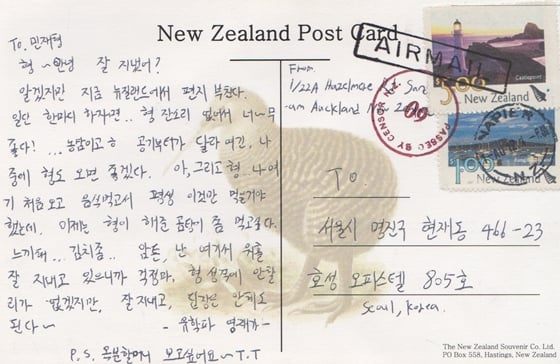 New Zealand Post Card
To. 민재형
형 ~ 안녕 잘 지냈어?
알겠지만 지금 뉴질랜드에서 편지 부친다.
일단 한마디 하자면.. 형 잔소리 없어서 너~무
좋다! ...농담이고 ㅎ 공기부터가 달라 여긴. 나
중에 형도 오면 좋겠다. 아, 그리고 형 나 여
기 처음 오고 음식먹고서 평생 이것만 먹을거야
했는데, 이제는 형이 해준 곰탕이 좀 먹고싶다.
느끼해... 김치좀.. 암튼, 난 여기서
잘 지내고 있으니까 걱정마. 형 성격에 안할
리가 없겠지만, 잘 지내고, 답장은 안해도
된다~
- 유학파 영재가 -
P.S. 옥분할머니 보고싶어요~T.T
From.
1/22A Hazelmere Rd. San
Auckland NZ
AIRMAIL
PASSED BY CENSOR N.Z.
5.00
Castlepoint
New Zealand
1.00
New Zealand
NAPIER
N.Z.
To.
서울시 명진구 현재동 466-23
효성 오피스텔 805호
Seoul, Korea.
The New Zealand Souvenir Co. Ltd.
PO Box 558, Hastings, New Zealand